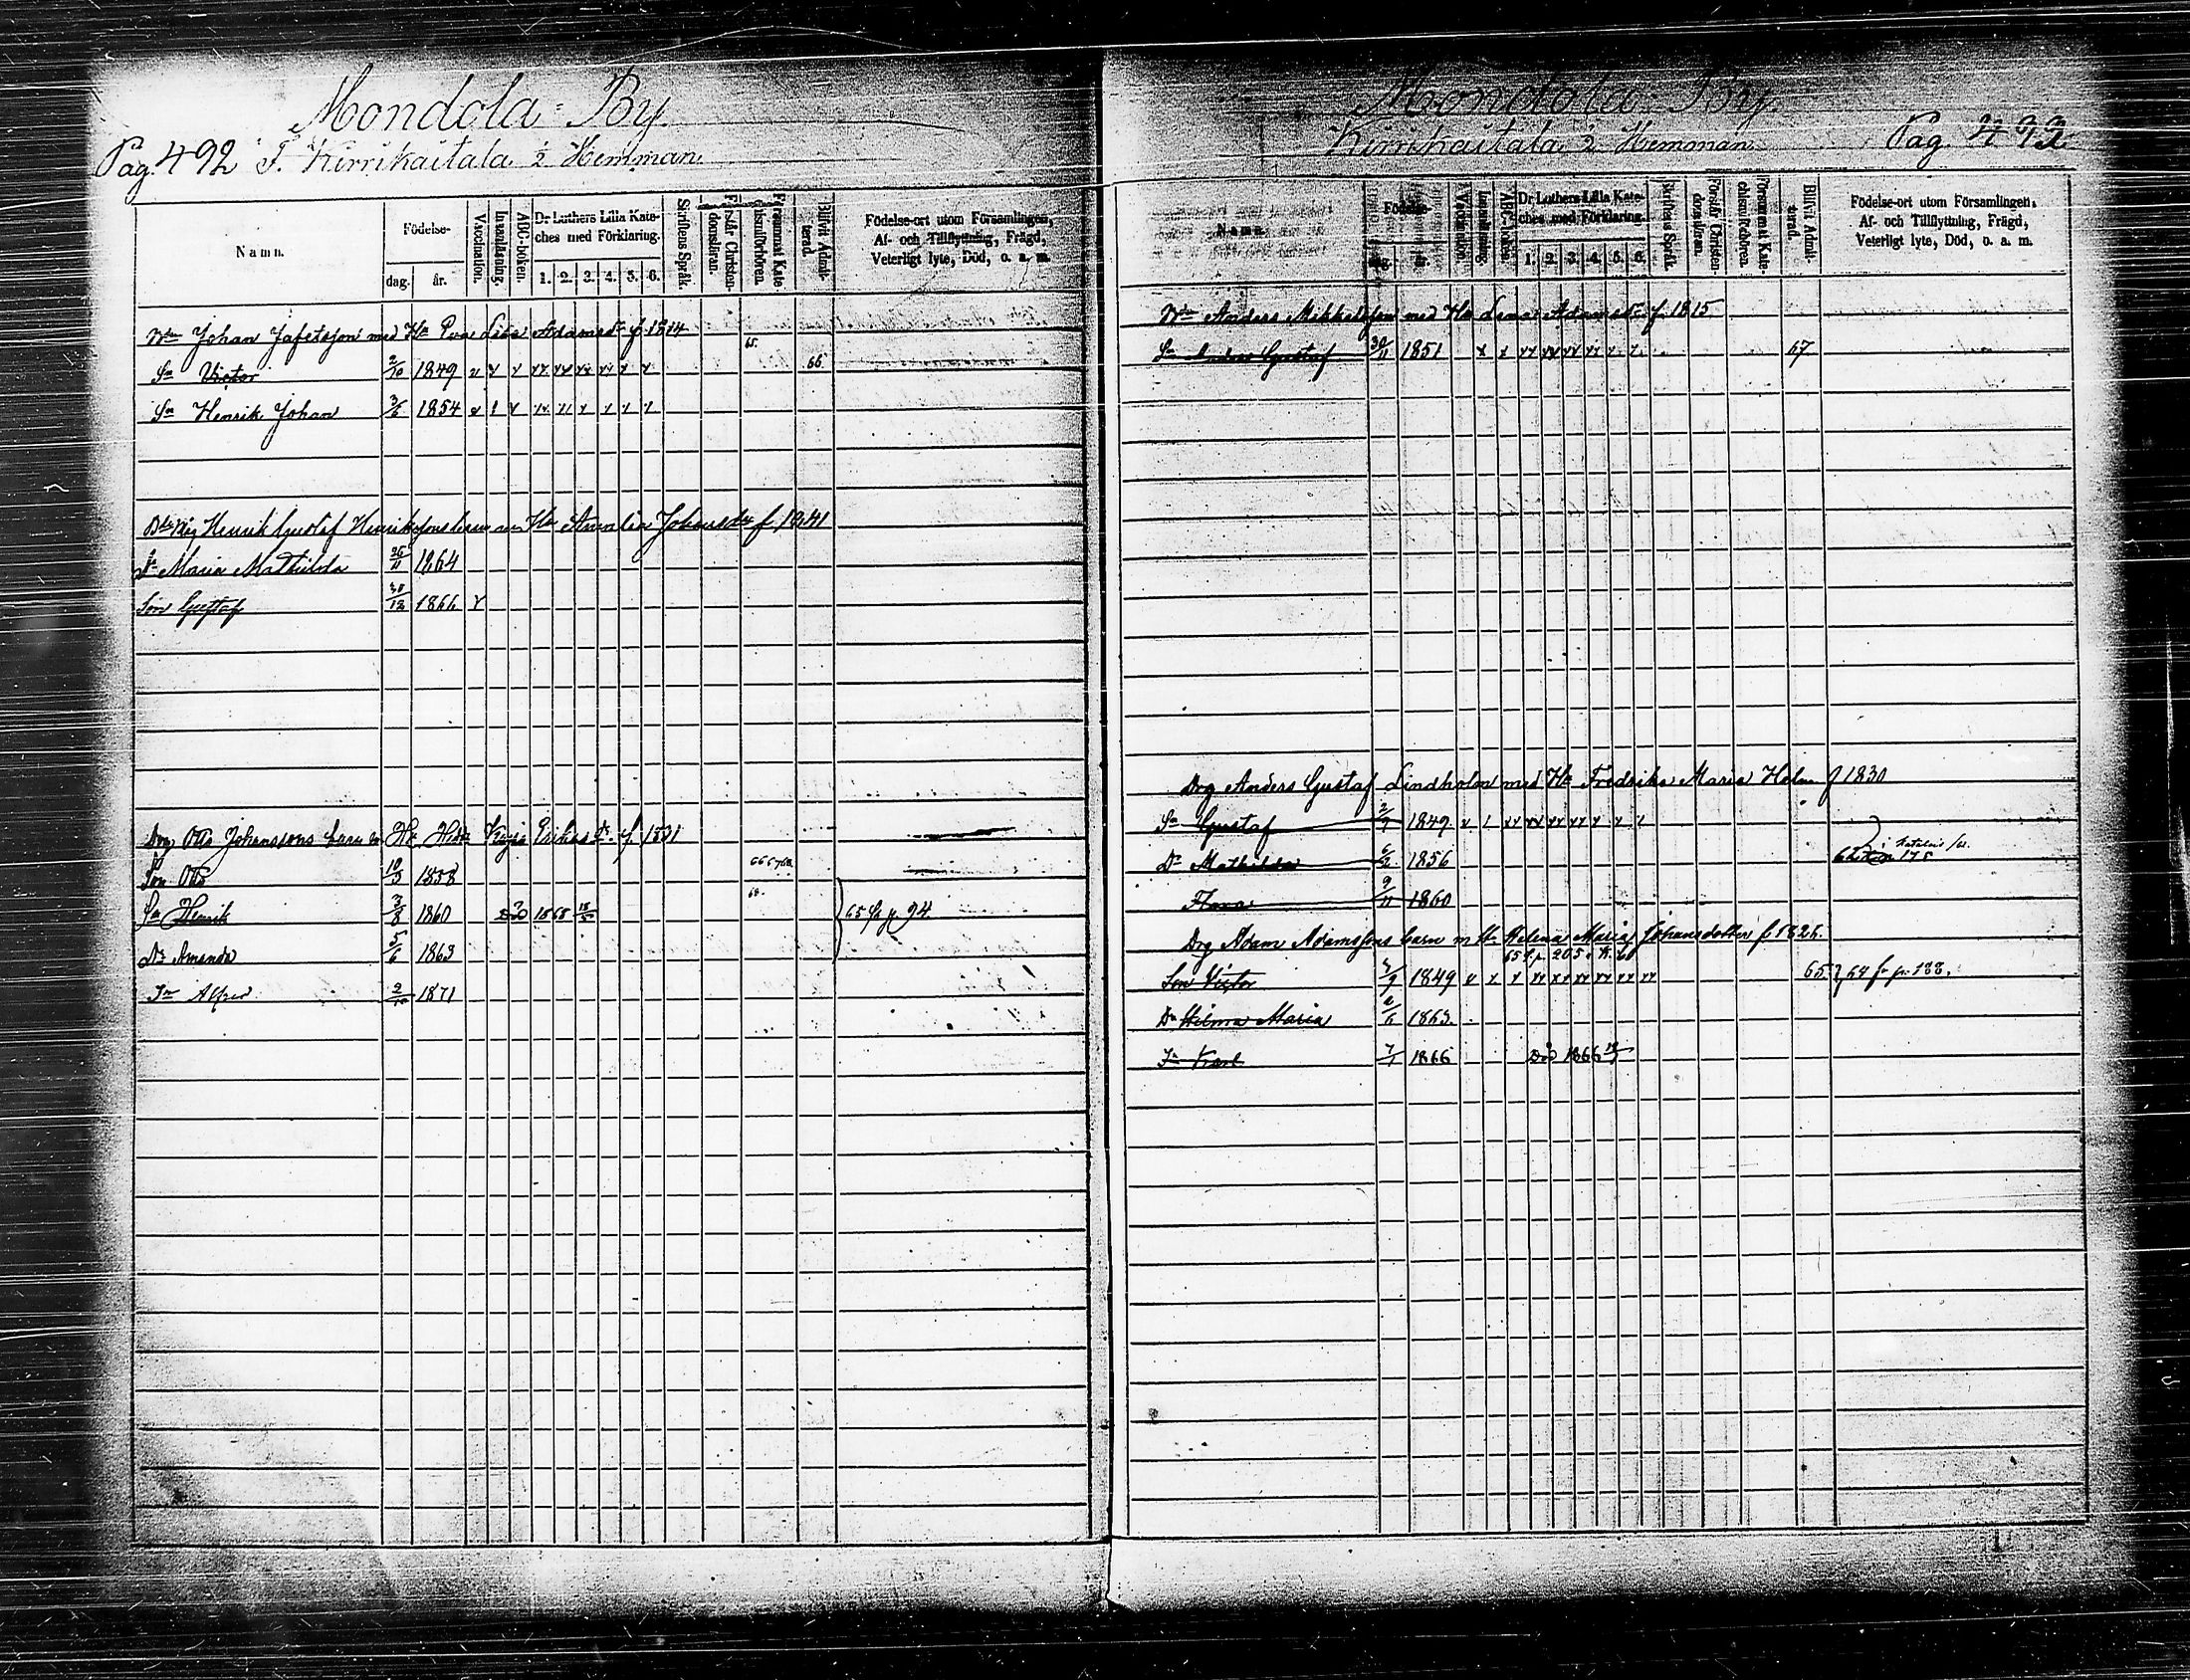 Mondola By.
Pag. 492 F. Kirrikaitala ½ Hemman.
Namn.
Födelse-
dag. år.
Vaccination.
Innanläsning.
ABC-boken.
Dr Luthers Lilla Kate-
ches med Förklaring.
1. 2. 3. 4. 5. 6.
Skriftens Språk.
Förstår Christen-
domsläran.
Försummat Kate-
chismiförhören.
Blifvit Admit-
terad.
Födelse-ort utom Församlingen,
Af- och Tillflyttning, Frägd,
Veterligt lyte, Död, o. a. m.
Johan Jafetsson med Hu Eva Lisa Adamsdr f. 1814
65.
Sn Victor 2/10 1849 66
Sn Henrik Johan 3/6 1854
Henrik Gustaf Henrikssons barn m Hu Amalia Johansdr f 1841
Dr Maria Mathilda 26/11 1864
Son Gustaf 30/12 1866
Drg Otto Johanssons barn m Hu Hedv Erikasdr f. 1831
Son Otto 10/3 1858
Sn Henrik 3/8 1860 Död 1868 65 fr p. 94.
68.
Dr Amanda 5/6 1863
Sn Alfred 2/10 1871
Mondola By.
Kirrikaitala ½ Hemman Pag 493.
Namn.
Födelse-
dag. år.
Vaccination.
Innanläsning.
ABC-boken.
Dr Luthers Lilla Kate-
ches med Förklaring.
1. 2. 3. 4. 5. 6.
Skriftens Språk.
Förstår Christen-
domsläran.
Försummat Kate-
chismiförhören.
Blifvit Admit-
terad.
Födelse-ort utom Församlingen,
Af- och Tillflyttning, Frägd,
Veterligt lyte, Död, o. a. m.
Anders Mikkelsson med Hu Lena Adamsdr f. 1815
Sn Anders Gustaf 30/11 1851 67
Drg Anders Gustaf Lindholm med Hu Fredrika Maria Holm f 1830
Sn Gustaf 2/7 1849
Dr Mathilda 6/2 1856
Flora 9/11 1860
Drg Adam Adamssons barn m Hu Helena Maria Johansdotter f. 1826.
Son Victor 3/9 1849 65. 64 fr p. 188.
Dr Hilma Maria 1863.
Sn Karl 7/1 1866 Död 1866